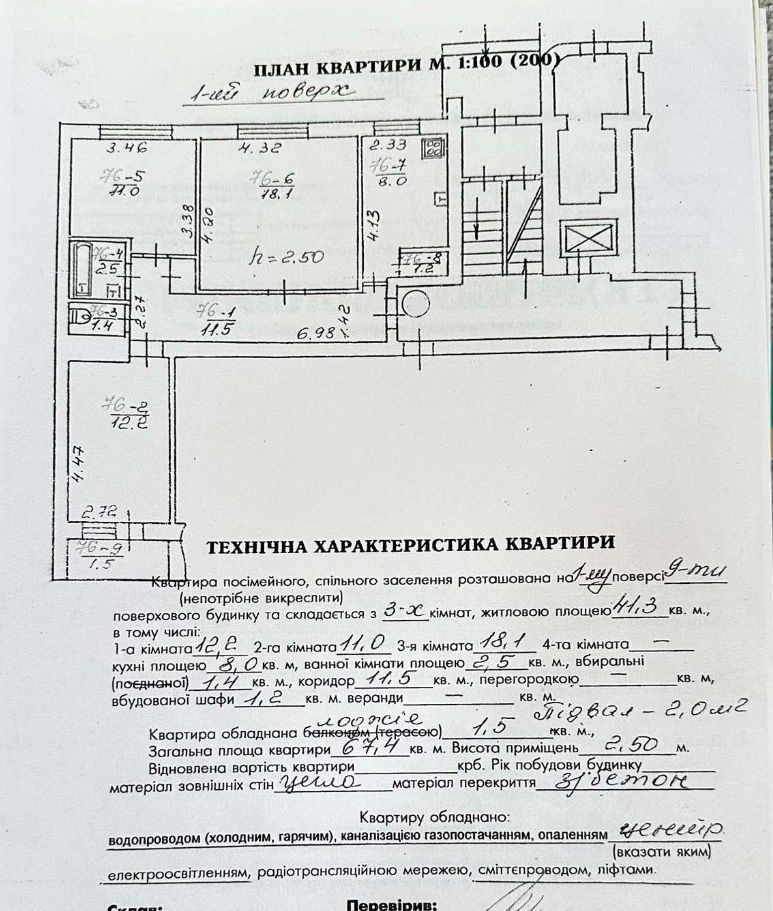 ПЛАН КВАРТИРИ М. 1:100 (200)
1-ий поверх
3.46
4.32
2.33
76-5
11.0
76-6
18.1
76-7
8.0
3.38
4.20
4.13
h = 2.50
76-4
2.5
76-8
1.2
76-3
1.4
2.27
76-1
11.5
6.98
1.42
76-2
12.2
4.47
2.72
76-9
1.5
ТЕХНІЧНА ХАРАКТЕРИСТИКА КВАРТИРИ
Квартира посімейного, спільного заселення розташована на 1-му поверсі 9-ти
(непотрібне викреслити)
поверхового будинку та складається з 3-х кімнат, житловою площею 41,3 кв. м.,
в тому числі:
1-а кімната 12,2 2-га кімната 11,0 3-я кімната 18,1 4-та кімната —
кухні площею 8,0 кв. м, ванної кімнати площею 2,5 кв. м., вбиральні
(поєднаної) 1,4 кв. м., коридор 11,5 кв. м., перегородкою — кв. м,
вбудованої шафи 1,2 кв. м. веранди — кв. м.
лоджіє Підвал - 2,0 м2
Квартира обладнана балконом (терасою) 1,5 кв. м.,
Загальна площа квартири 67,4 кв. м. Висота приміщень 2,50 м.
Відновлена вартість квартири крб. Рік побудови будинку
матеріал зовнішніх стін цегла матеріал перекриття з/бетон
Квартиру обладнано:
водопроводом (холодним, гарячим), каналізацією газопостачанням, опаленням центр.
(вказати яким)
електроосвітленням, радіотрансляційною мережею, сміттєпроводом, ліфтами.
Склав: Перевірив: